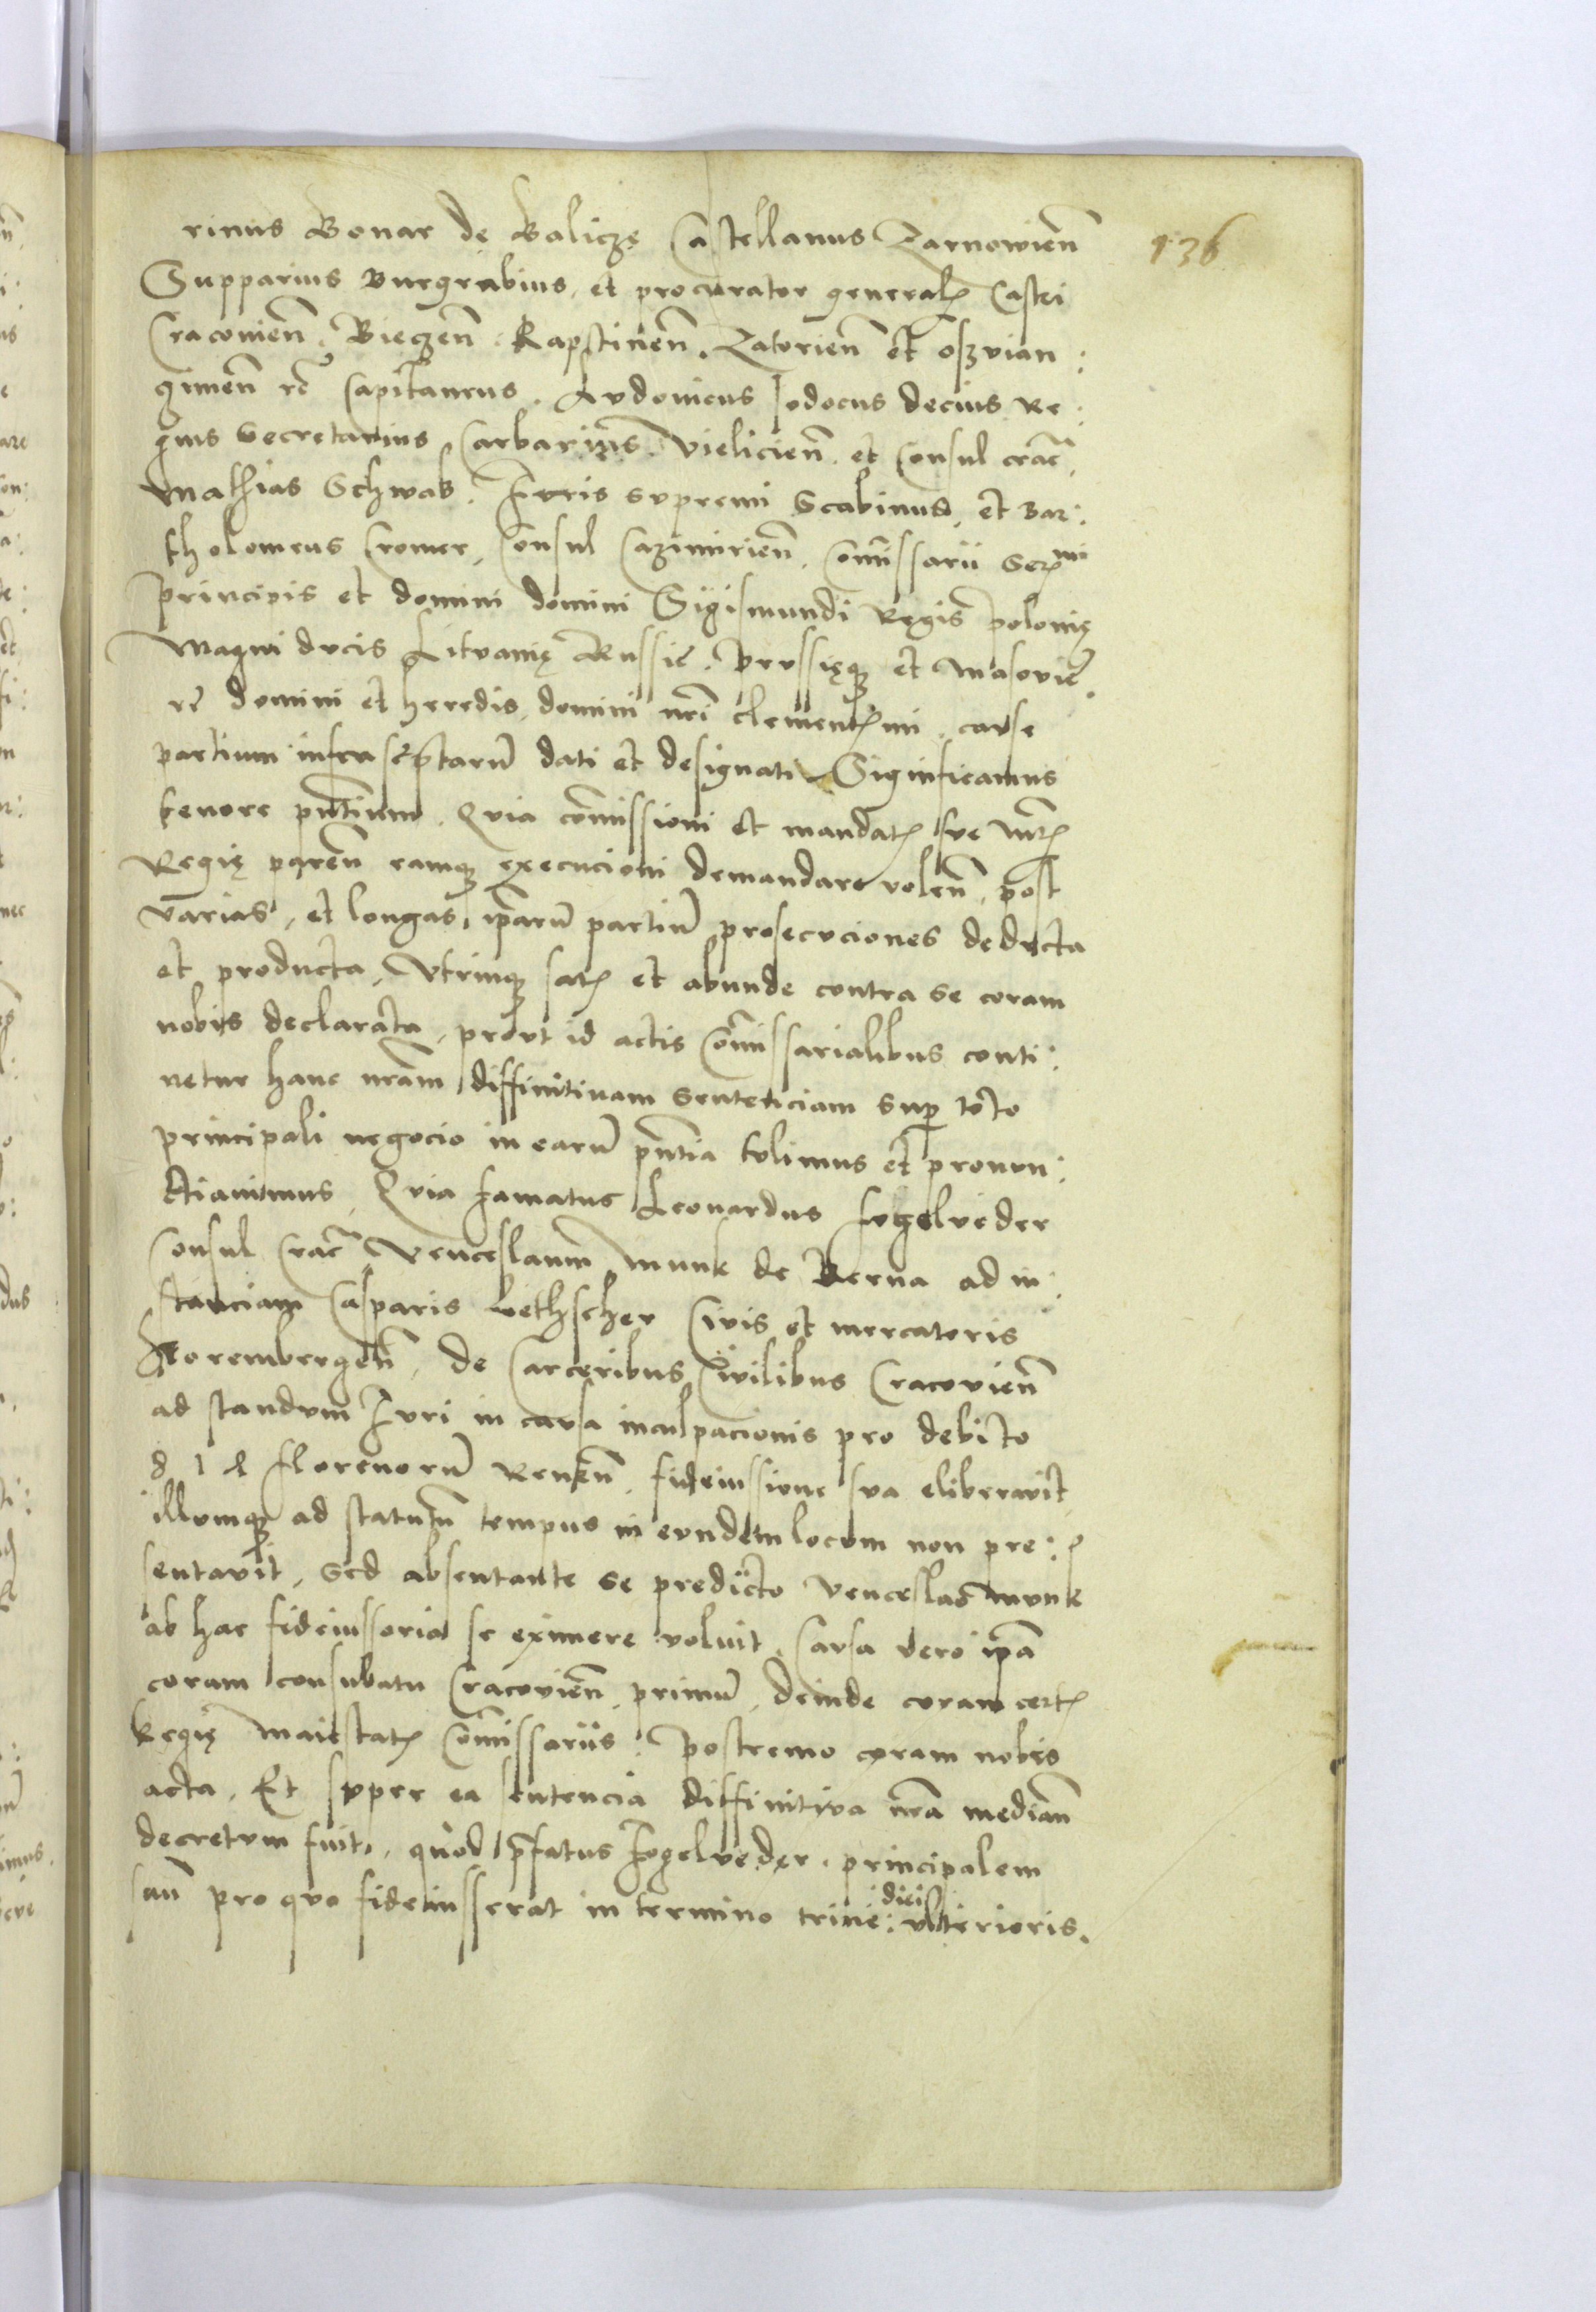 136
rinus Bonar de Balicze Castellanus Zarnowien̄
Supparius Burgrabius, et procurator generalꝭ Castri
Cracovien̄. Bieczen̄. Rapstinen̄. Zatorien̄ et osʒvian:
gimen̄ rc̄ Capitaneus. Ludovicus Jodocus decius Re:
gius Secretarius Carbarius Vielicien̄. et Consul crac̄.
Mathias Schwab. Juris supremi Scabinus, et Bar:
tholomeus Cromer, Consul Cazimirien̄. Com̄issarii Serᵐⁱ
principis et domini domini Sigismundi Regis polonię
Magni ducis Lituanię Russie. Prussięqꝫ et Masovie.
rc̄ domini et heredis, domini nr̄i clementꝭmi. cause
partium infra scͥptarū dati et designati Significamus
tenore pn̄tium. Quia com̄issioni et mandatꝭ sue Mtꝭ
Regię paren̄ eamqꝫ execucioni demandare volen̄, post
varias, et longas, ip̄arū partiū prosecuciones deducta
et producta, Utrinqꝫ satꝭ et abunde contra se coram
nobis declarata, prout id actis Com̄issarialibus conti:
netur hanc nr̄am diffinitivam sentenciam sup̱ toto
principali negocio in earū pn̄tia tulimus et pronun:
ctiavimus, Quia famatus Leonardus Fogelveder
Consul crac̄ Venceslaum Munk de Berna ad in:
stanciam Casparis bethscher Civis et mercatoris
Norembergen̄. de Carceribus Civilibus Cracovien̄
ad standum Juri in causa inculpacionis pro debito
814 florenorū Renen̄, fideiussione sua eliberavit
illumqꝫ ad statutū tempus in eundem locum non pre:
sentavit, Sed absentante se predicto Venceslao Munk
ab hac fideiussoria se eximere voluit, Causa vero ip̄a
coram consulatu Cracovien̄ primū, deinde coram certꝭ
Regię Maiestatꝭ Com̄issariis: Postremo coram nobis
acta. Et super ea sentencia diffinitiva nr̄a median̄
decretum fuit, quod p̄fatus Fogelveder. principalem
suū pro quo fideiusserat in termino trine: diei ulterioris.